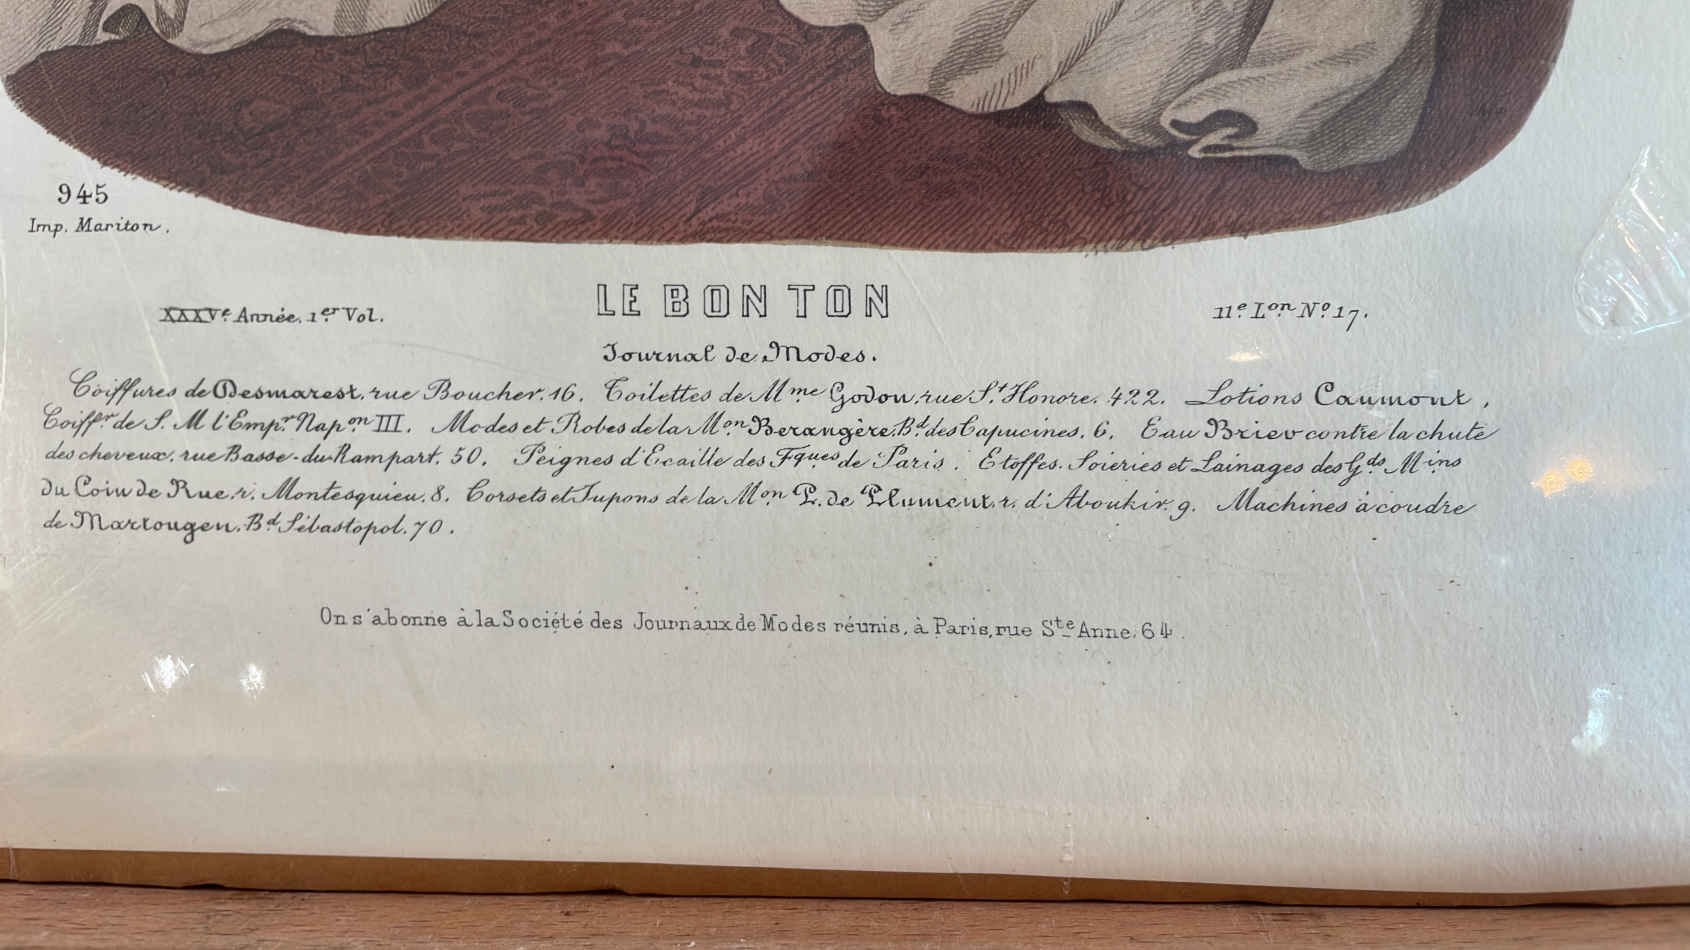 945
Imp. Mariton.
LE BON TON
XXXVe. Année. 1er. Vol.
11e. Lon No. 17.
Journal de Modes.
Coiffures de Desmarest, rue Boucher. 16. Toilettes de Mme Godou, rue St. Honore. 422. Lotions Caumont,
Coiffr. de S. M l'Empr. Napon III. Modes et Robes de la Mon. Berangère. Bd. des Capucines. 6. Eau Briev contre la chute
des cheveux, rue Basse-du-Rampart. 50. Peignes d'Ecaille des Fques de Paris. Etoffes. Soieries et Lainages des Gds Mins
du Coin de Rue, r. Montesquieu. 8. Corsets et Jupons de la Mon P. de Plument, r. d'Aboukir. 9. Machines à coudre
de Martougen. Bd Sébastopol. 70.
On s'abonne à la Société des Journaux de Modes réunis, à Paris, rue Ste Anne. 64.